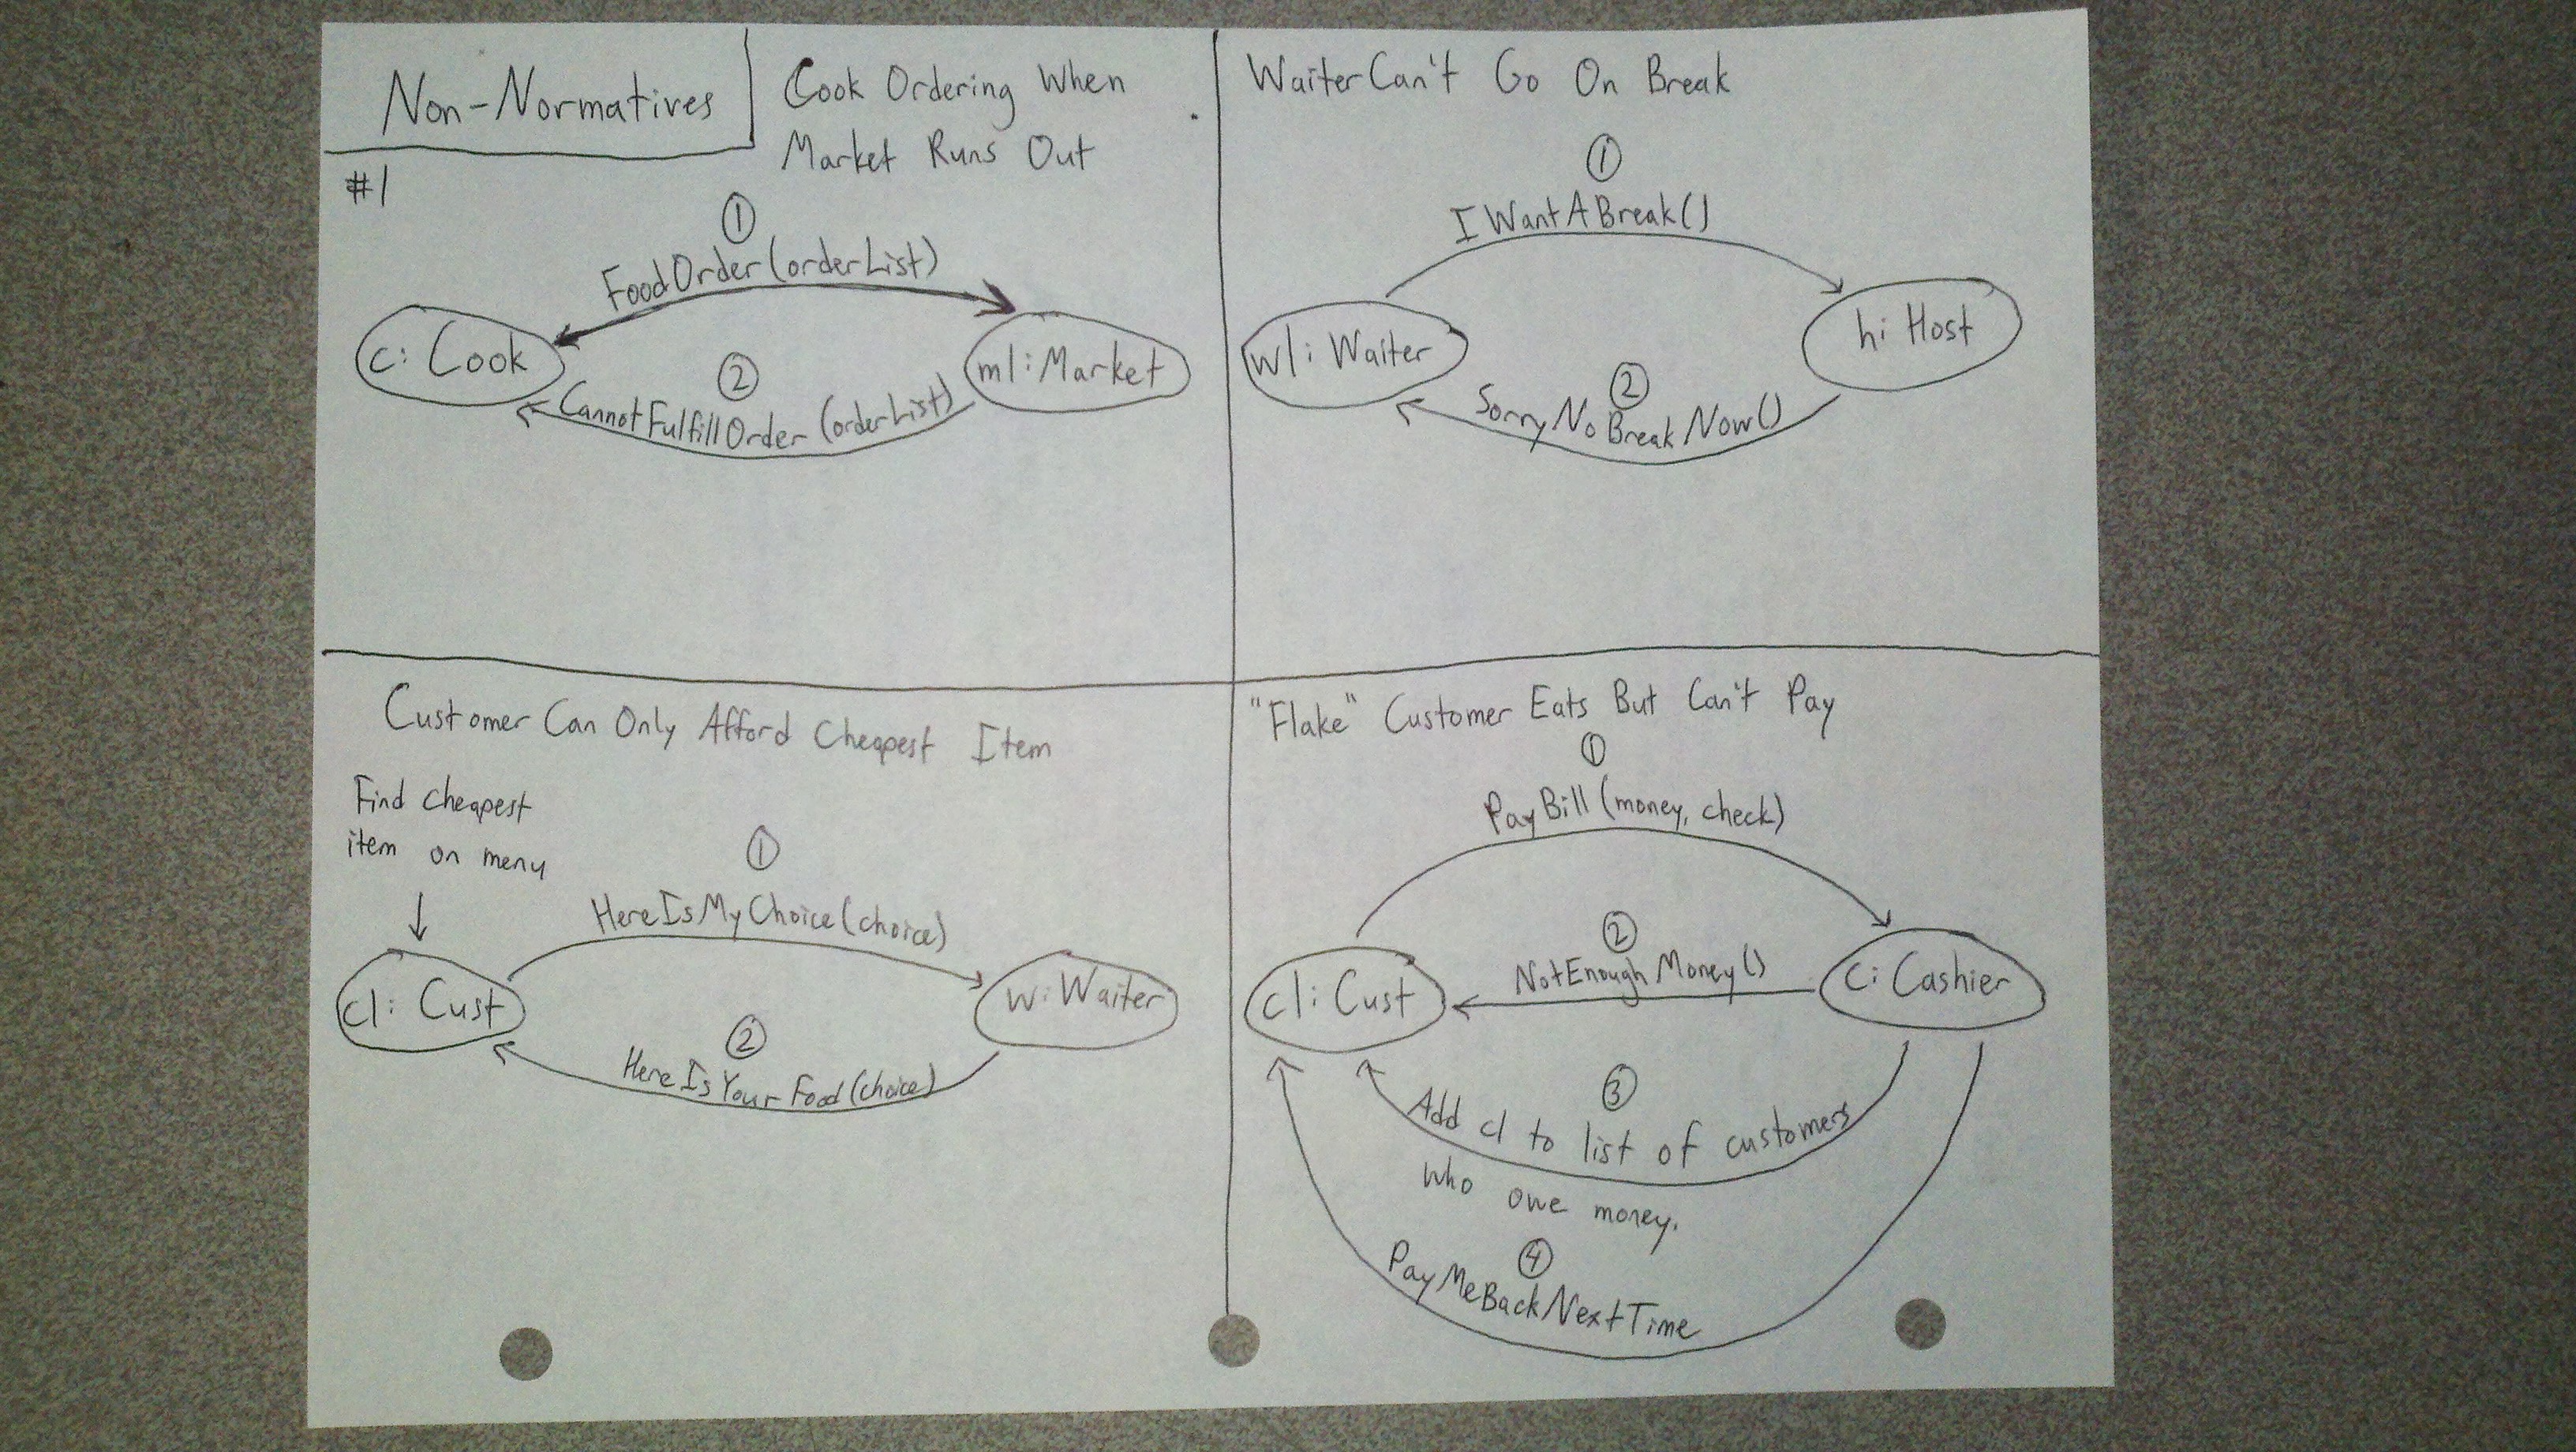 Non-Normatives
#1
Cook Ordering When
Market Runs Out
①
FoodOrder(orderList)
c: Cook
m1: Market
②
CannotFulfillOrder (orderList)
Waiter Can't Go On Break
①
IWantABreak()
w1: Waiter
h: Host
②
SorryNoBreakNow()
Customer Can Only Afford Cheapest Item
Find cheapest
item on menu
①
HereIsMyChoice(choice)
c1: Cust
w: Waiter
②
HereIsYourFood(choice)
"Flake" Customer Eats But Can't Pay
①
PayBill(money, check)
②
NotEnoughMoney()
c1: Cust
c: Cashier
③
Add c1 to list of customers
who owe money.
④
PayMeBackNextTime